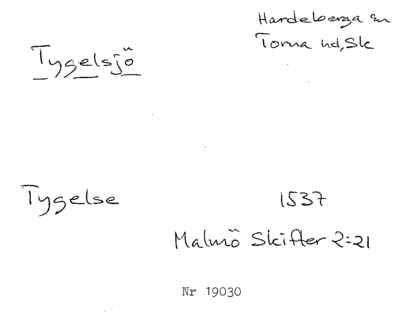 Hardeberga sn
Tygelsjö
Torna hd, Sk
Tygelse 1537
Malmö Skifter 2:21
Nr 19030